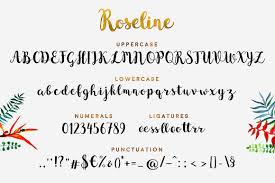 Roseline
UPPERCASE
ABCDEFGHIJKLMNOPQRSTUVWXYZ
LOWERCASE
abcdefghijklmnopqrstuvwxyz
NUMERALS LIGATURES
0123456789 cesslloottrr
PUNCTUATION